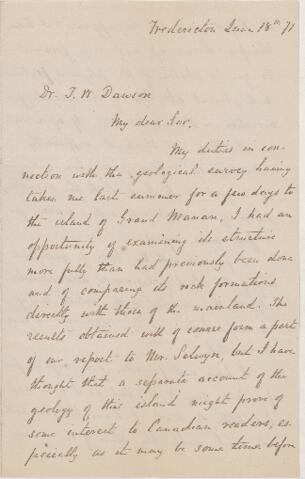 Fredericton June 18th 71
Dr. J. W. Dawson
My dear Sir.
My duties in con-
nection with the geological survey having
taken me last summer for a few days to
the island of Grand Manan, I had an
opportunity of examining its structure
more fully than had previously been done
and of comparing its rock formations
directly with those of the mainland. The
results obtained will of course form a part
of our report to Mr. Selwyn, but I have
thought that a separate account of the
geology of this island might prove of
some interest to Canadian readers, es-
pecially as it may be some time before